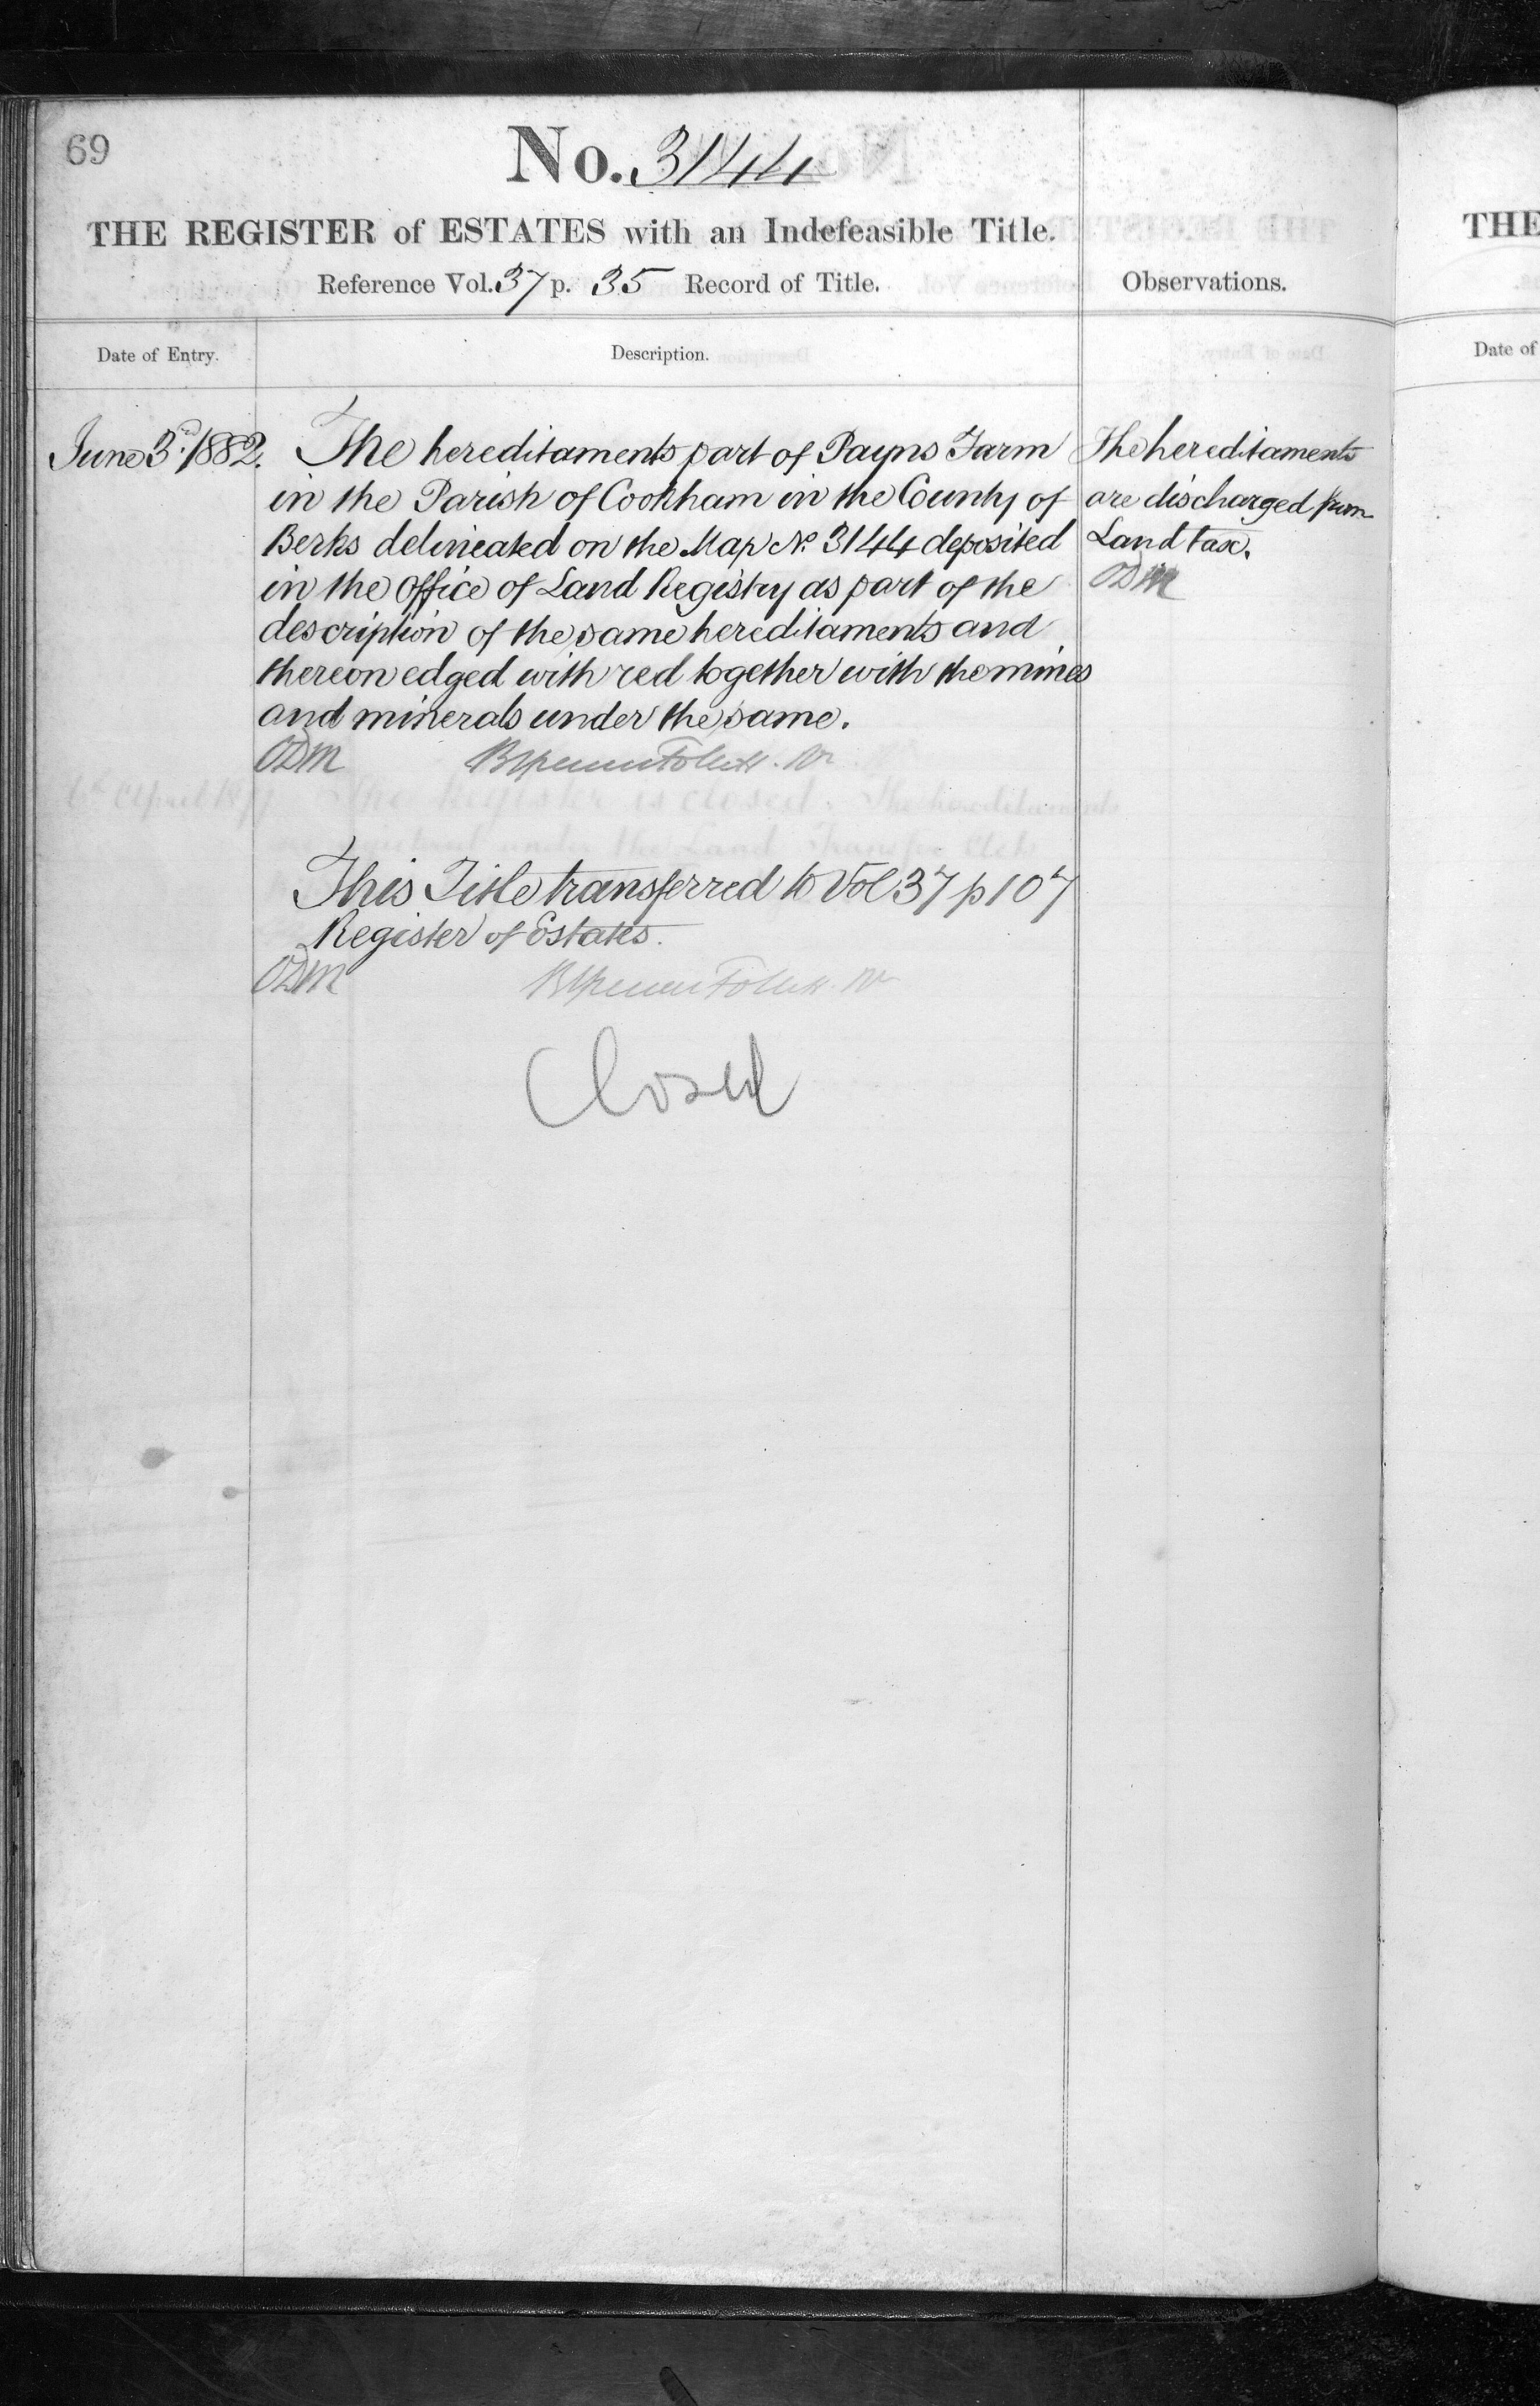 69
No. 3144
THE REGISTER of ESTATES with an Indefeasible Title.
Reference Vol. 37 p. 35 Record of Title.
Observations.
Date of Entry.
Description.
June 3rd 1882.
The hereditaments part of Payns Farm
in the Parish of Cookham in the County of
Berks delineated on the Map No. 3144 deposited
in the Office of Land Registry as part of the
description of the same hereditaments and
thereon edged with red together with the mines
and minerals under the same.
ODM
The hereditaments
are discharged from
Land tax.
ODM
The Register is closed. The hereditaments
under the Land Transfer Acts
This Title transferred to Vol 37 p 107
Register of Estates.
ODM
Closed
THE
Date of